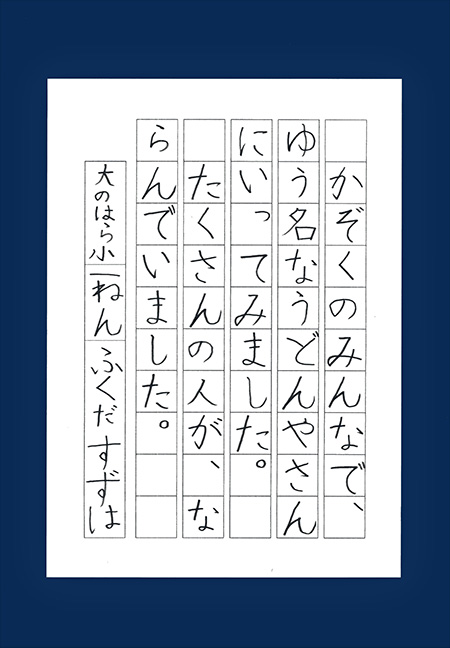 かぞくのみんなで、
ゆう名なうどんやさん
にいってみました。
たくさんの人が、な
らんでいました。
大のはら小一ねんふくだすずは